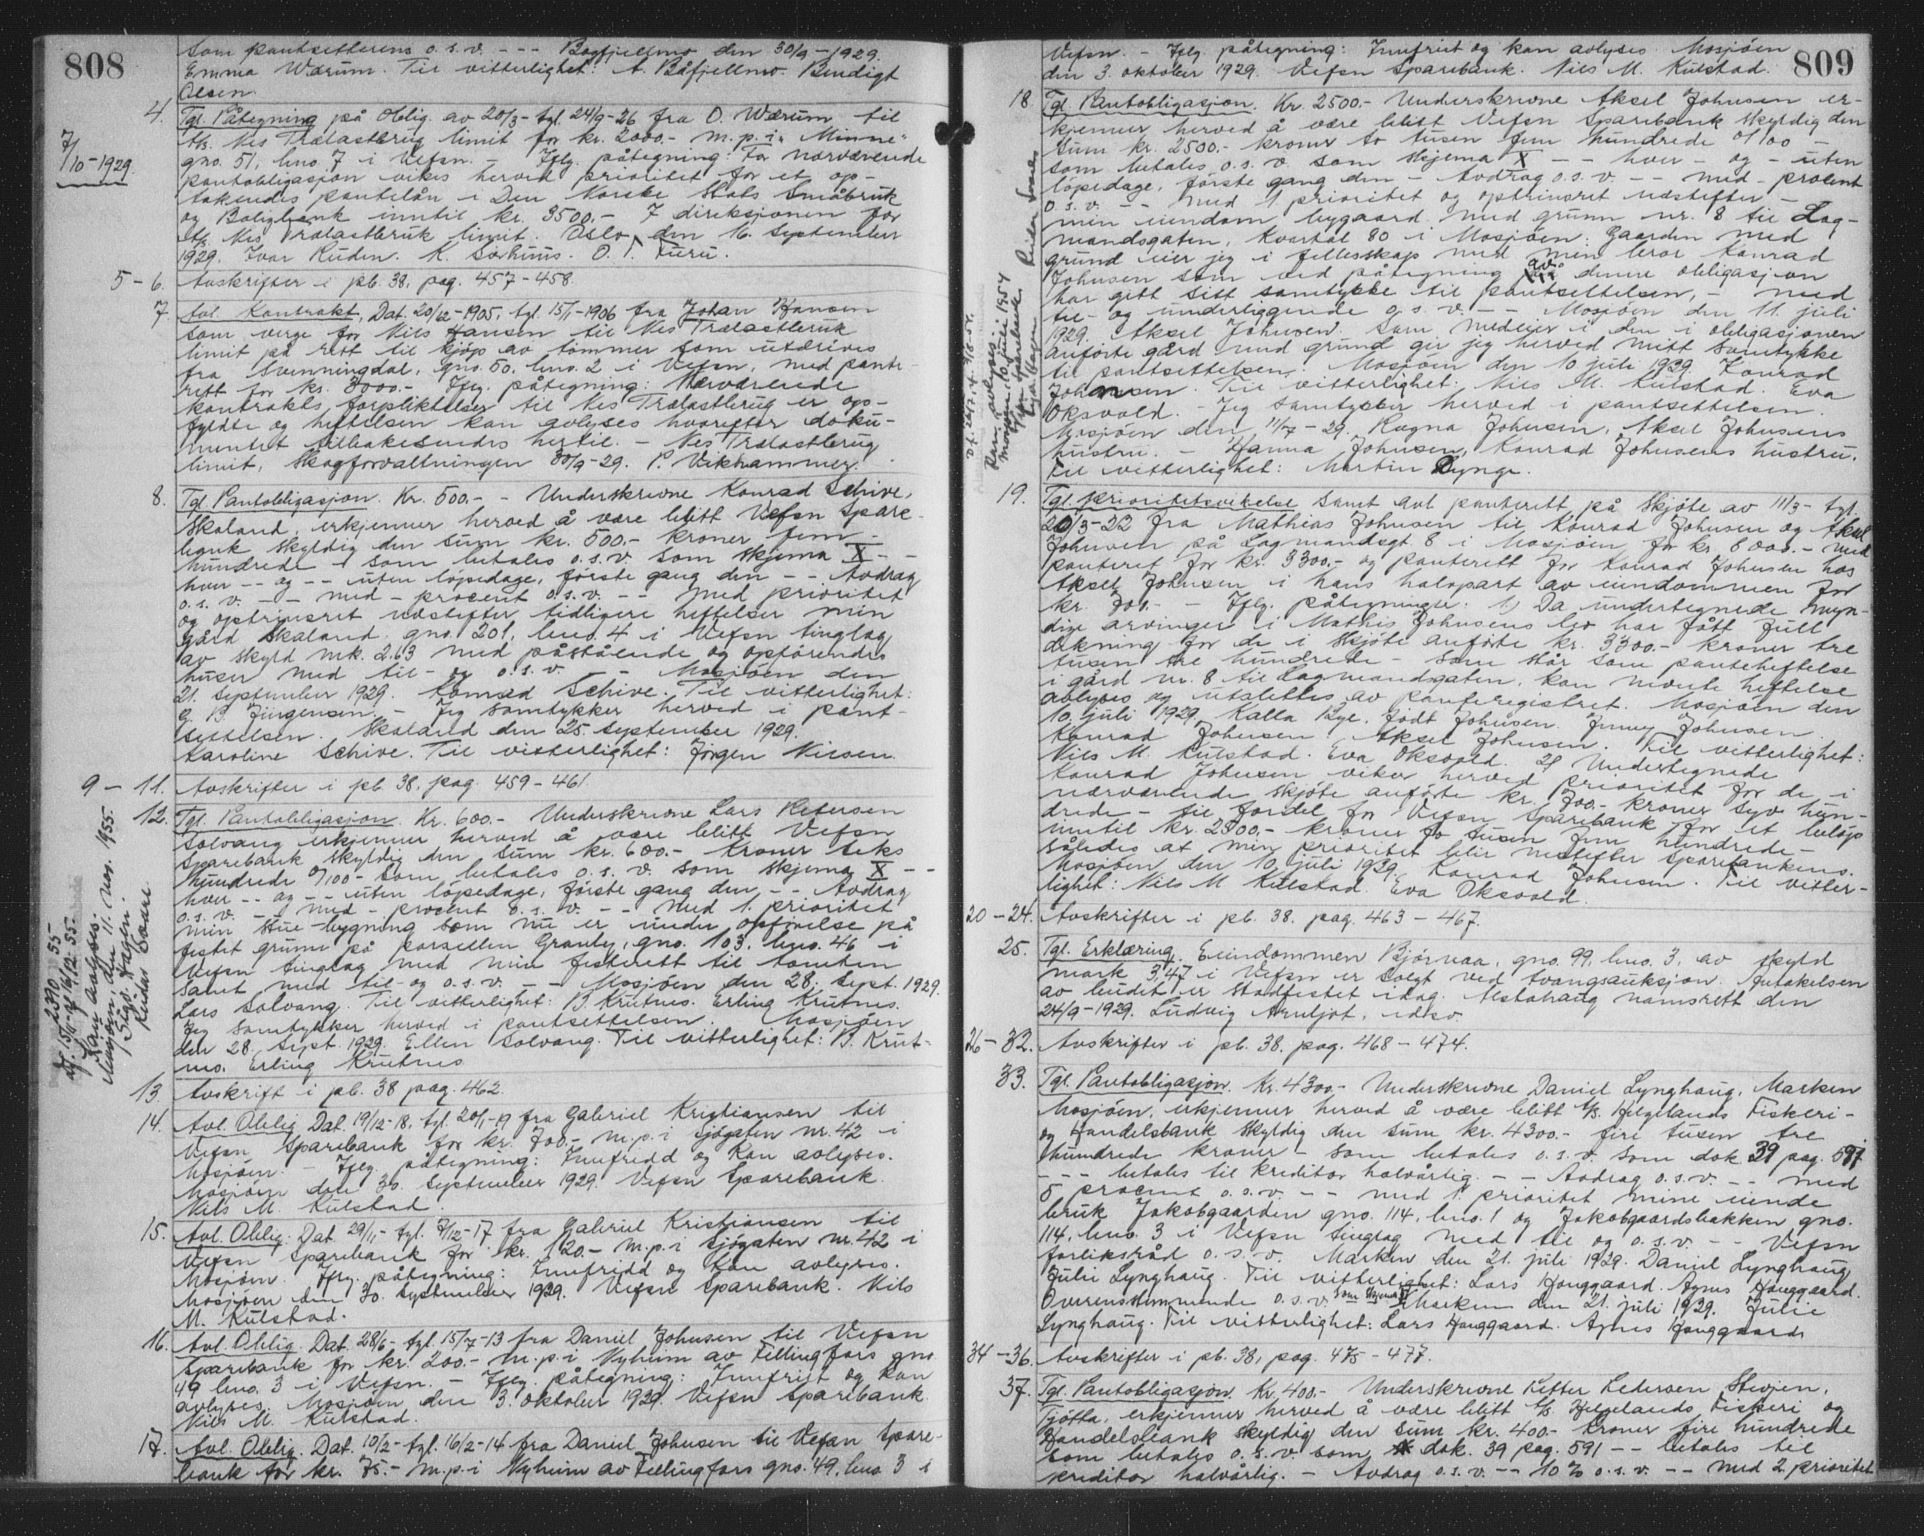 808
som pantsetterens o.s.v. --- Bagfjellmo den 30/9-1929.
Emma Wærum. Til vitterlighet: A. Båfjellmo. Bendigt
Olsen.
4. Tgl. Påtegning på Oblig. av 20/3- tgl. 24/9-26 fra O. Wærum til
A/s. Nes Trælastbrug limit for kr. 2000.- m.p.i. Minne"
7/10-1929.
gno. 51, bno. 7 i Vefsn. - Iflg. påtegning: For nærværende
pantobligasjon vikes herved prioritet for et op-
takendes pantelån i Den Norske Stats Småbruk
og Boligbank inntil kr. 3500.- I direksjonen for
A/s. Nes Trælastbruk limit. Oslo, den 16. september
1929. Ivar Ruden. K. Sørhuus. O. T. Furu.
5-6. Avskrifter i pb. 38, pag. 457-458.
7 Avl. Kontrakt. Dat. 20/12-1905, tgl. 15/1-1906 fra Johan Hansen
som verge for Nils Hansen til Nes Trælastbruk
limit på rett til kjøp av tømmer som utdrives
fra Svenningdal, gno. 50, bno. 2 i Vefsn, med pante-
rett for kr. 3000.- Iflg. påtegning: Nærværende
kontrakts forpliktelser til Nes Trælastbrug er op-
fyldte og heftelsen kan avlyses hvorefter doku-
mentet tilbakesendes hertil. - Nes Trælastbrug
limit, Skogforvaltningen 30/9-29. P. Vikhammer.
8. Tgl. Pantobligasjon. Kr. 500.- - Underskrevne Konrad Schive,
Skaland, erkjenner herved å være blitt Vefsn Spare-
bank skyldig den sum kr. 500.- kroner fem-
hundrede - som betales o.s.v. som skjema X - -
hver -- og -- uten løpedage, første gang den -- Avdrag
o.s.v. -- med - procent o.s.v. -- Med prioritet
og optrinsret næstefter tidligere heftelser min
gård Skaland. gno. 201, bno. 4 i Vefsn tinglag
av skyld mk. 2.63 med påstående og opførendes
huser med til- og o.s.v. - - Mosjøen den
21. september 1929. Konrad Schive. Til vitterlighet:
G. B. Jürgensen. - Jeg samtykker herved i pant-
settelsen. Skaland den 25. september 1929.
Karoline Schive. Til vitterlighet: Jørgen Nilsen.
9-11. Avskrifter i pb. 38, pag. 459-461.
12. Tgl. Pantobligasjon. Kr. 600.- Underskrevne Lars Petersen
Solvang erkjenner herved å være blitt Vefsn
Sparebank skyldig den sum kr. 600.- Kroner seks
hundrede 0/100 - som betales o.s.v. som skjema X - -
hver -- og -- uten løpedage, første gang den -- Avdrag
o.s.v. -- med - procent o.s.v. -- Med 1. prioritet
min stue bygning som nu er under opførelse på
festet grunn på parsellen Granby, gno. 103, bno. 46 i
Vefsn tinglag med min festerett til tomten
samt med til- og o.s.v. -- Mosjøen den 28. sept. 1929.
Lars Solvang. Til vitterlighet: B. Krutnes. Erling Krutnes.
Jeg samtykker herved i pantsettelsen. Mosjøen
den 28. sept. 1929. Ellen Solvang. Til vitterlighet: B. Krut-
nes. Erling Krutnes
Kan avlyses.
Mosjøen den 11. nov. 1955.
Sigv. Hagen.
13. Avskrift i pb. 38 pag. 462.
14. Avl. Oblig. Dat. 19/12-18, tgl. 20/1-19 fra Gabriel Kristiansen til
Vefsn Sparebank for kr. 700.- m.p.i Sjøgaten nr. 42 i
Mosjøen. - Iflg. påtegning: Innfridd og kan avlyses.
Mosjøen den 30. september 1929. Vefsn Sparebank.
Nils M. Kulstad.
15. Avl. Oblig. Dat. 29/11- tgl. 7/12-17 fra Gabriel Kristiansen til
Vefsn Sparebank for kr. 120.- m.p.i Sjøgaten nr. 42 i
Mosjøen. Iflg. påtegning: Innfridd og kan avlyses.
Mosjøen den 30. september 1929. Vefsn Sparebank. Nils
M. Kulstad.
16. Avl. Oblig. Dat. 28/6- tgl. 15/7-13 fra Daniel Johnsen til Vefsn
Sparebank for kr. 200.- m.p.i Nyheim av Fellingfors gno
49 bno. 3 i Vefsn. - Iflg. påtegning: Innfrist og kan
avlyses. Mosjøen den 3. oktober 1929. Vefsn Sparebank
Nils M. Kulstad.
17. Avl. Oblig. Dat. 10/2- tgl. 16/2-14 fra Daniel Johnsen til Vefsn Spare-
bank for kr. 75.- m.p.i Nyheim av Fellingfors gno. 49, bno 3 i
809
Vefsn. - Iflg. påtegning: Innfrist og kan avlyses. Mosjøen
den 3. oktober 1929. Vefsn Sparebank. Nils M. Kulstad.
18. Tgl. Pantobligasjon. Kr. 2500.- Underskrevne Aksel Johnsen er-
kjenner herved å være blitt Vefsn Sparebank skyldig den
sum kr. 2500.- kroner to tusen fem hundrede 0/100 -
som betales o.s.v. som skjema X - - hver - og - uten
løpedage, første gang den - Avdrag o.s.v. -- med - procent
o.s.v. -- Med 1 prioritet og optrinsret næstefter -
min eiendom bygaard med grunn nr. 8 til Lag-
mandsgaten, kvartal 80 i Mosjøen. Gaarden med
grund eier jeg i fellesskap med men bror Konrad
Johnsen som ved påtegning av denne obligasjon
har gitt sitt samtykke til pantsettelsen, - med
til- og underliggende o.s.v. -- Mosjøen den 11. juli
1929. Aksel Johnsen. Som medeier i den i obligasjonen
anførte gård med grund gir jeg herved mitt samtykke
til pantsettelsen. Mosjøen den 10 juli 1929. Konrad
Johnsen. Til vitterlighet: Nils M. Kulstad. Eva
Oksvold. - Jeg samtykker herved i pantsettelsen.
Mosjøen den 11/7-29. Ragna Johnsen, Aksel Johnsens
hustru. - Hanna Johnsen, Konrad Johnsens hustru.
Til vitterlighet: Martin Dynge.
Kan avlyses.
Mosjøen 10 juli 1954
Vefsn Sparebank
19. Tgl. Prioritetsvikelse samt avl panterett på skjøte av 11/3- tgl.
20/3-22 fra Mathias Johnsen til Konrad Johnsen og Aksel
Johnsen på Lagmandsgt 8 i Mosjøen for kr 8000.- med
panteret for kr. 3300.- og panterett for Konrad Johnsen hos
Aksel Johnsen i hans halvpart av eiendommen for
kr. 700.- - Iflg. påtegninger: 1) Da undertegnede myn-
dige arvinger i Mathis Johnsens bo har fått full
dekning for de i skjøte anførte kr. 3300.- kroner tre
tusen tre hundrede - som står som panteheftelse
i gård nr. 8 til Lagmandsgaten, kan nevnte heftelse
avlyses og utslettes av panteregistret. Mosjøen den
10. juli 1929. Kalla Bye, født Johnsen. Jenny Johnsen.
Konrad Johnsen. Aksel Johnsen. Til vitterlighet:
Nils M. Kulstad. Eva Oksvold. 2) Undertegnede
Konrad Johnsen viker herved prioritet for de i
nærværende skjøte anførte kr. 700.- kroner syv hun-
drede - til fordel for Vefsn Sparebank for et beløp
inntil kr. 2500.- kroner to tusen fem hundrede -
således at min prioritet blir nestefter sparebankens.
Mosjøen den 10. juli 1929. Konrad Johnsen. Til vitter-
lighet: Nils M Kulstad. Eva Oksvold.
20-24. Avskrifter i pb. 38. pag. 463-467.
25. Tgl. Erklæring. Eiendommen Bjørnaa, gno. 99, bno. 3, av skyld
mark 3,47 i Vefsn er solgt ved tvangsauksjon. Antakelsen
av budet er stadfestet idag. Alstahaug namsrett den
24/9-1929. Ludvig Arnljot,
26-32. Avskrifter i pb. 38. pag. 468-474.
33. Tgl. Pantobligasjon. Kr. 4300.- Underskrevne Daniel Lynghaug, Marken
Mosjøen, erkjenner herved å være blitt A/S. Helgelands Fiskeri-
og Handelsbank skyldig den sum kr. 4300.- fire tusen tre
hundrede kroner - som betales o.s.v. som dok. 39 pag. 597
-- betales til kreditor halvårlig. - - Avdrag o.s.v. -- med
8 procent o.s.v. -- med 1. prioritet mine eiende
bruk Jakobgaarden gno. 114, bno. 1 og Jakobgaardsbakken gno.
114, bno. 3 i Vefsn tinglag med til og o.s.v. -- Vefsn
forliksråd o.s.v. Marken den 21. juli 1929. Daniel Lynghaug
Julie Lynghaug. Til vitterlighet: Lars Hauggaard. Agnes Hauggaard.
Overensstemmende o.s.v. som skjema X Marken den 21. juli 1929. Julie
Lynghaug. Til vitterlighet: Lars Hauggaard. Agnes Hauggaard
34-36. Avskrifter i pb. 38, pag. 475-477.
37. Tgl. Pantobligasjon. Kr. 400.- Underskrevne Petter Pedersen Stevjen,
Tjøtta, erkjenner herved å være blitt A/S. Helgelands Fiskeri og
Handelsbank skyldig den sum kr. 400.- kroner fire hundrede
som betales o.s.v. som dok. 39 pag. 591 -- betales til
kreditor halvårlig. - Avdrag o.s.v. -- 10 % o.s.v. -- med 2 prioritet